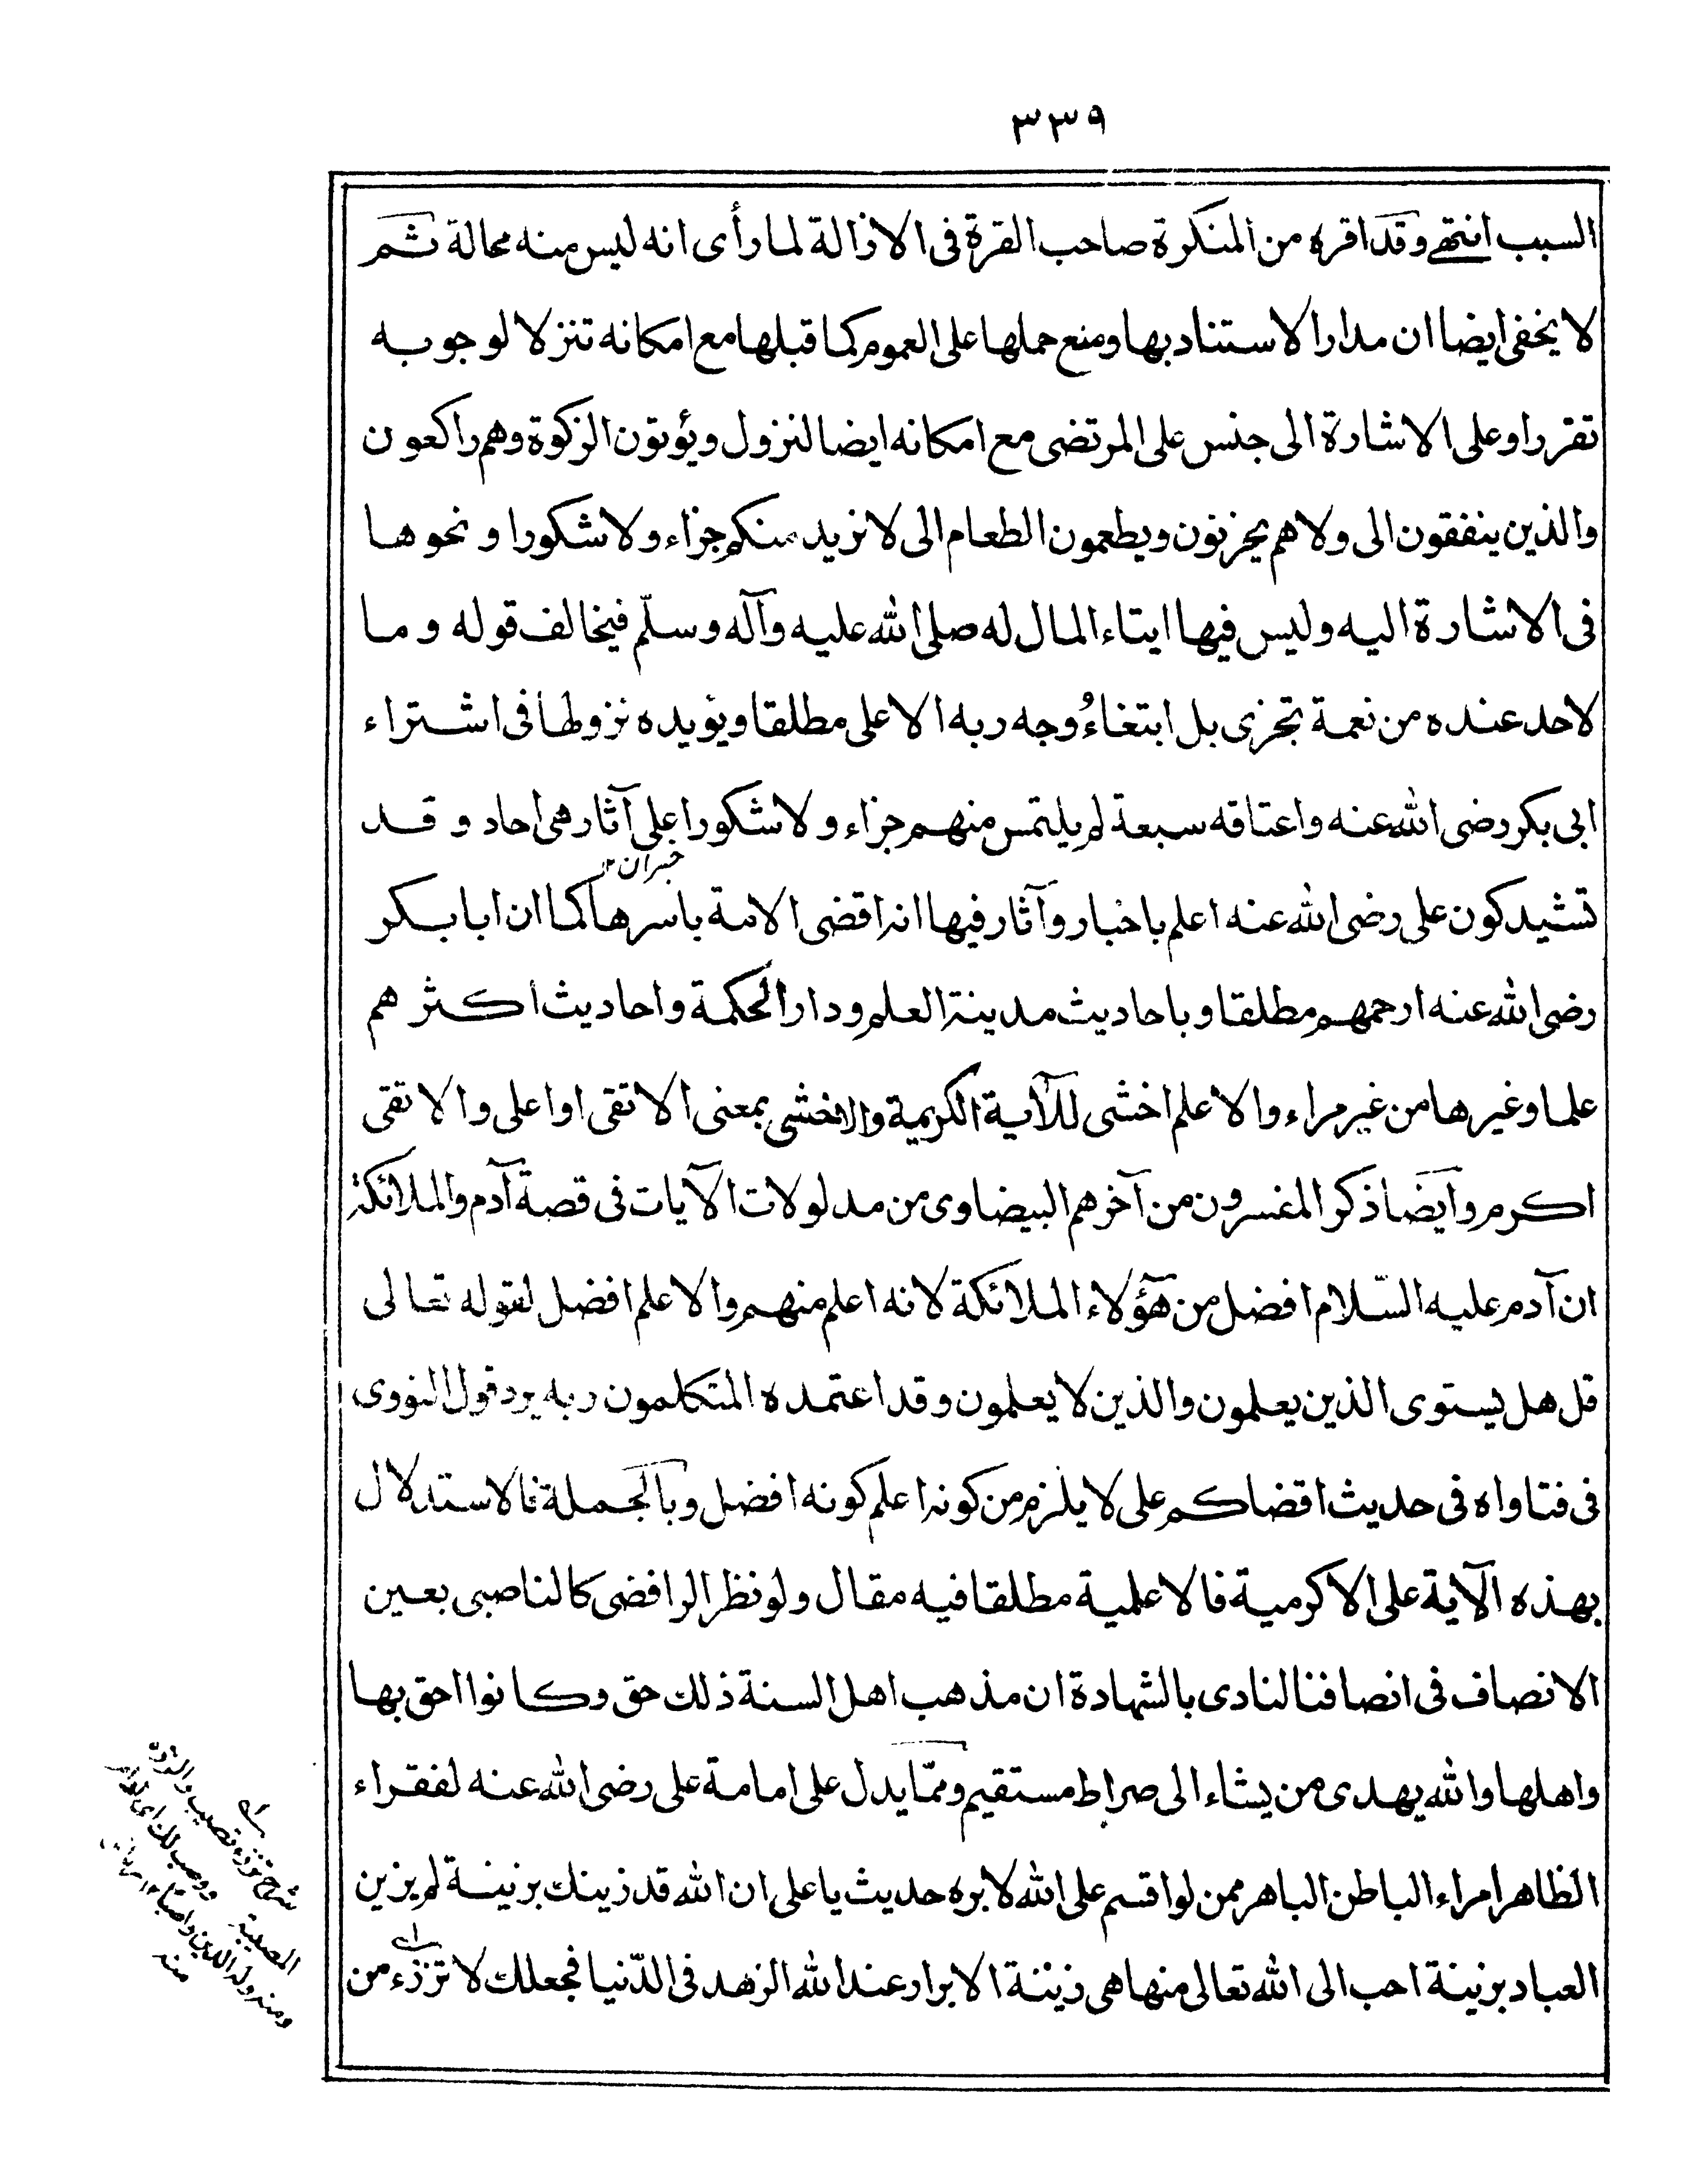 ٣٣٩
السبب انتهى وقد اقره من المنكرة صاحب القرة فى الازالة لما رأى انه ليس منه محالة ثم
لا يخفى ايضا ان مدار الاستناد بها ومنع حملها على العموم كما قبلها مع امكانه تنزلا لوجوبه
تقررا وعلى الاشارة الى جنس على المرتضى مع امكانه ايضا لنزول ويؤتون الزكوة وهم راكعون
والذين ينفقون الى ولا هم يحزنون ويطعمون الطعام الى لا نريد منكم جزاء ولا شكورا ونحوها
فى الاشارة اليه وليس فيها ايتاء المال له صلى الله عليه وآله وسلّم فيخالف قوله وما
لاحد عنده من نعمة تجزى بل ابتغاءُ وجه ربه الاعلى مطلقا ويؤيده نزولها فى اشتراء
ابى بكر رضى الله عنه واعتاقه سبعة لم يلتمس منهم جزاء ولا شكورا على آثار هى احاد وقد
خبران ١٢
تشيد كون على رضى الله عنه اعلم باخبار وآثار فيها انه اقضى الامة باسرها كما ان ابا بكر
رضى الله عنه ارحمهم مطلقا وباحاديث مدينة العلم ودار الحكمة واحاديث اكثرهم
علما وغيرها من غير مراء والاعلم اخشى للآية الكريمة والاخشى بمعنى الاتقى او اعلى والاتقى
اكرم وايضا ذكر المفسرون من آخرهم البيضاوى من مدلولات الآيات فى قصة آدم والملائكة
ان آدم عليه السّلام افضل من هؤلاء الملائكة لانه اعلم منهم والاعلم افضل لقوله تعالى
قل هل يستوى الذين يعلمون والذين لا يعلمون وقد اعتمده المتكلمون وبه يرد قول النووى
فى فتاواه فى حديث اقضاكم على لا يلزم من كونه اعلم كونه افضل وبالجملة فالاستدلال
بهذه الآية على الاكرمية فالاعلمية مطلقا فيه مقال ولو نظر الرافضى كالناصبى بعين
الانصاف فى انصافنا لنادى بالشهادة ان مذهب اهل السنة ذلك حق وكانوا احق بها
واهلها والله يهدى من يشاء الى صراط مستقيم وممّا يدل على امامة على رضى الله عنه لفقراء
الظاهر امراء الباطن الباهر ممن لو اقسم على الله لابره حديث يا على ان الله قد زينك بزينة لم يزين
العباد بزينة احب الى الله تعالى منها هى زينة الابرار عند الله الزهد فى الدّنيا فجعلك لا ترزء من
اى
شرح ترزء تصيب والرزء
المصيبة ووصب لك اى دام
ومنه وله الدين واصبا ١٢
منه